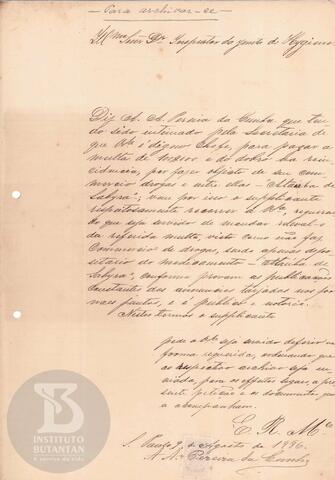 — Para archivar-se —
Illmo Snr Dr Inspector do serviço de Hygiene
Diz A. A. Pereira da Cunha que ten
do sido intimado pela secretaria de
que VSa é digno Chefe, para pagar a
multa de e do dobro na rein
cidencia, por fazer objecto de seu com
mercio drogas e entre ellas —
vem por isso o supplicante
respeitosamente recorrer a VSa, requeren
do que seja servido de mandar releval-o
da referida multa visto como não faz
Commercio de drogas, sendo apenas depo
sitario do medicamento —
conforme provam as publicações
Constantes dos annuncios nos jor
naes juntos, e é publico e notorio.
Nestes termos o supplicante
pede a VSa seja servido deferir na
forma requerida, ordenando que
ao respectivo archivo seja en
viada, para os effeitos legaes, a pre
sente petição e os documentos que
a acompanham.
E. R. Mce
S. Paulo 9 de Agosto de 1896
A. A. Pereira da Cunha
INSTITUTO
BUTANTAN
A serviço da vida